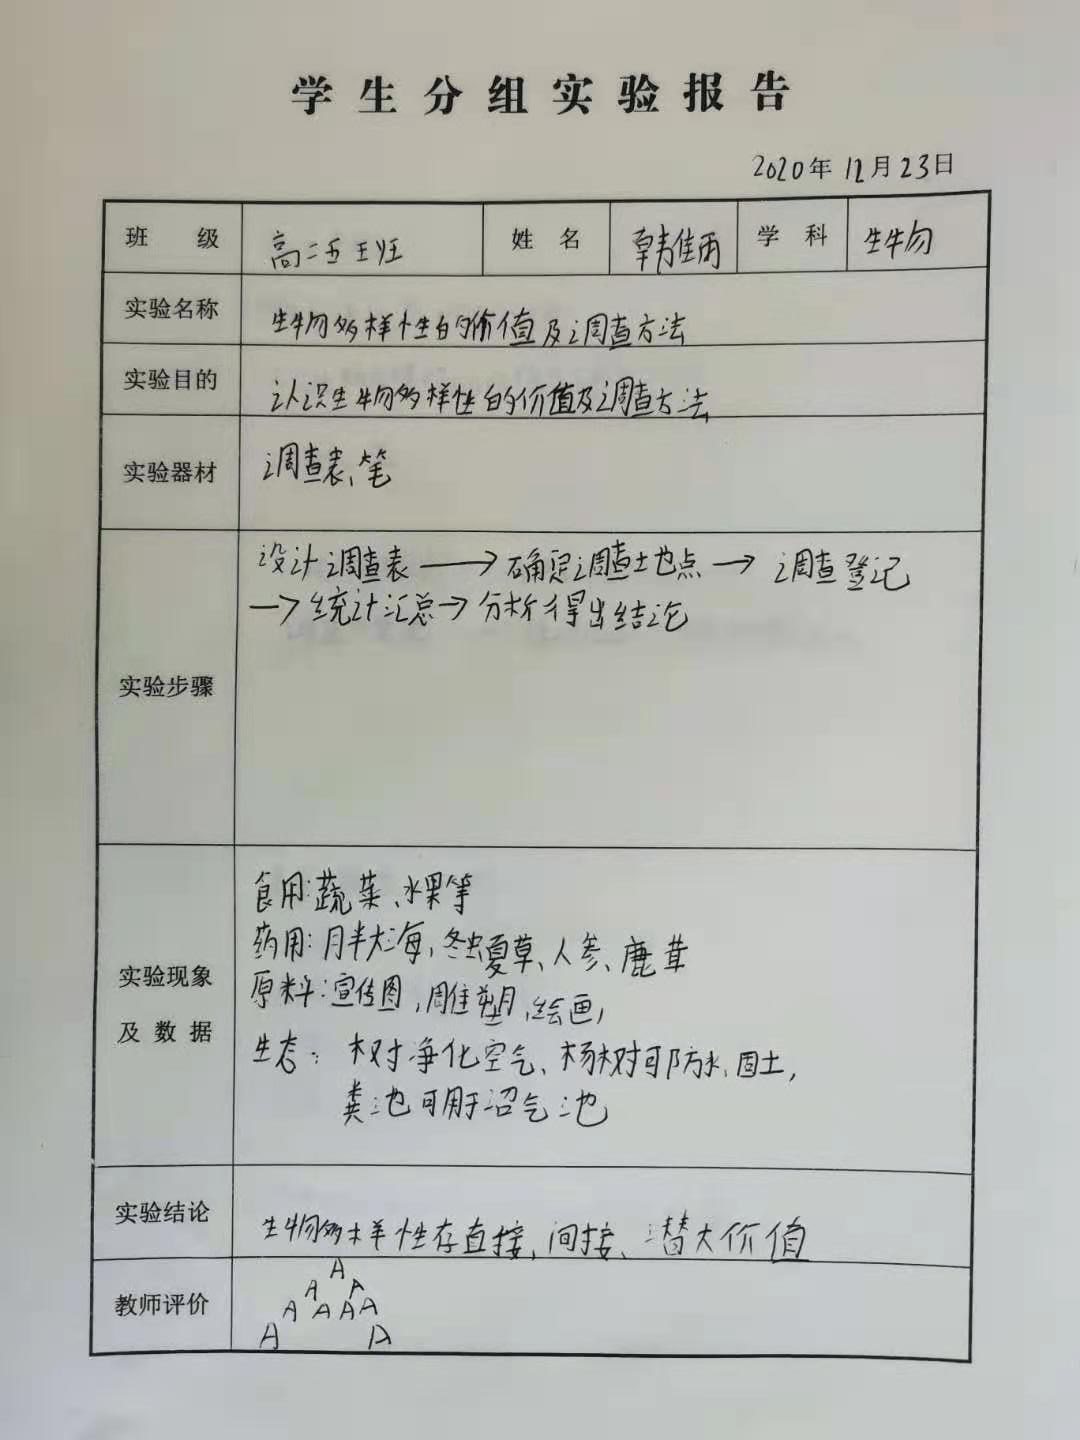 学生分组实验报告
2020年12月23日
班 级 高二五王班 姓 名 韩佳雨 学 科 生物
实验名称 生物多样性的价值及调查方法
实验目的 认识生物多样性的价值及调查方法
实验器材 调查表、笔
设计调查表→确定调查地点→调查登记
→统计汇总→分析得出结论
实验步骤
食用:蔬菜、水果等
药用:胖大海,冬虫夏草、人参、鹿茸
实验现象
原料:宣传图,雕塑,绘画,
及数据
生态:树净化空气、杨树可防水、固土,
粪池可用于沼气池
实验结论 生物多样性存直接、间接、潜大价值
教师评价
A
A A
A A A A
A A